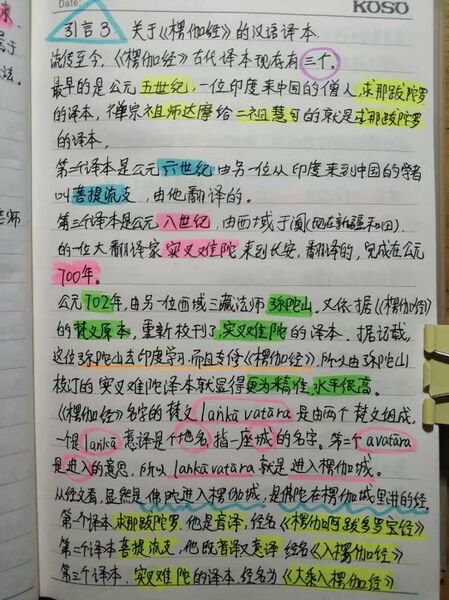 Date:
KOSO
引言3. 关于《楞伽经》的汉语译本.
流传至今,《楞伽经》古代译本现存有三个.
最早的是公元五世纪,一位印度来中国的僧人,求那跋陀罗
的译本,禅宗祖师达摩给二祖慧可的就是求那跋陀罗
的译本,
第二个译本是公元六世纪由另一位从印度来到中国的学者
叫菩提流支,由他翻译的.
第三个译本是公元八世纪,由西域于阗(现在新疆和田).
的一位大翻译家实叉难陀来到长安,翻译的,完成在公元
700年.
公元702年,由另一位西域三藏法师弥陀山.又依据《楞伽经》
的梵文原本,重新校刊了,实叉难陀的译本.据记载,
这位弥陀山去印度学习,而且专修《楞伽经》,所以由弥陀山
校订的实叉难陀译本就显得更为精准,水平很高.
《楞伽经》名字的梵文lankā vatāra是由两个梵文组成,
一个是lankā意译是个地名,指一座城的名字.第二个avatāra
是进入的意思,所以lankāvatāra就是进入楞伽城.
从经文看,显然是佛陀进入楞伽城,是佛陀在楞伽城里讲的经.
第一个译本求那跋陀罗,他是音译,经名《楞伽阿跋多罗宝经》
第二个译本菩提流支,他既音译又意译 经名《入楞伽经》
第三个译本,实叉难陀的译本,经名为《大乘入楞伽经》
来
属于
法.
老师